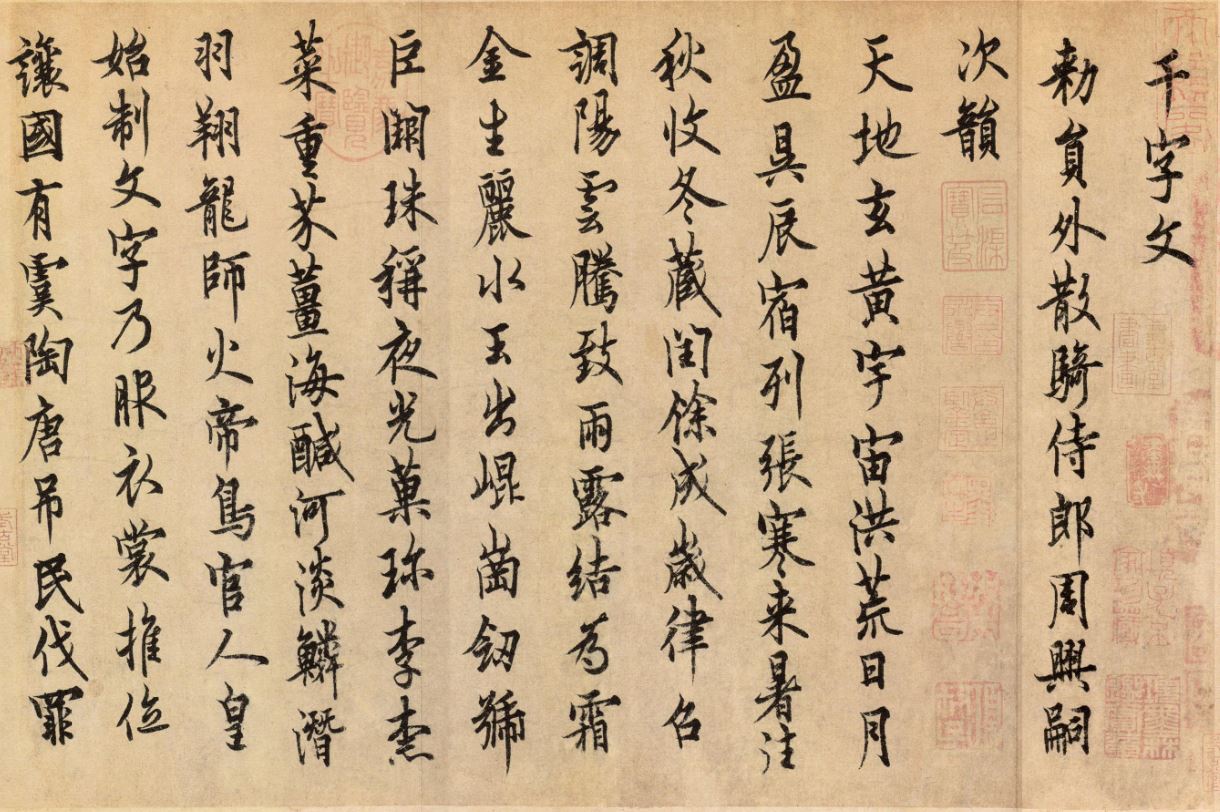 千字文
勅員外散騎侍郎周興嗣
次韻
天地玄黃宇宙洪荒日月
盈昃辰宿列張寒来暑往
秋收冬藏閏餘成歲律召
調陽雲騰致雨露結為霜
金生麗水玉出崐崗劒號
巨闕珠稱夜光菓珎李柰
菜重芥薑海鹹河淡鱗潛
羽翔龍師火帝鳥官人皇
始制文字乃服衣裳推位
讓國有虞陶唐吊民伐罪